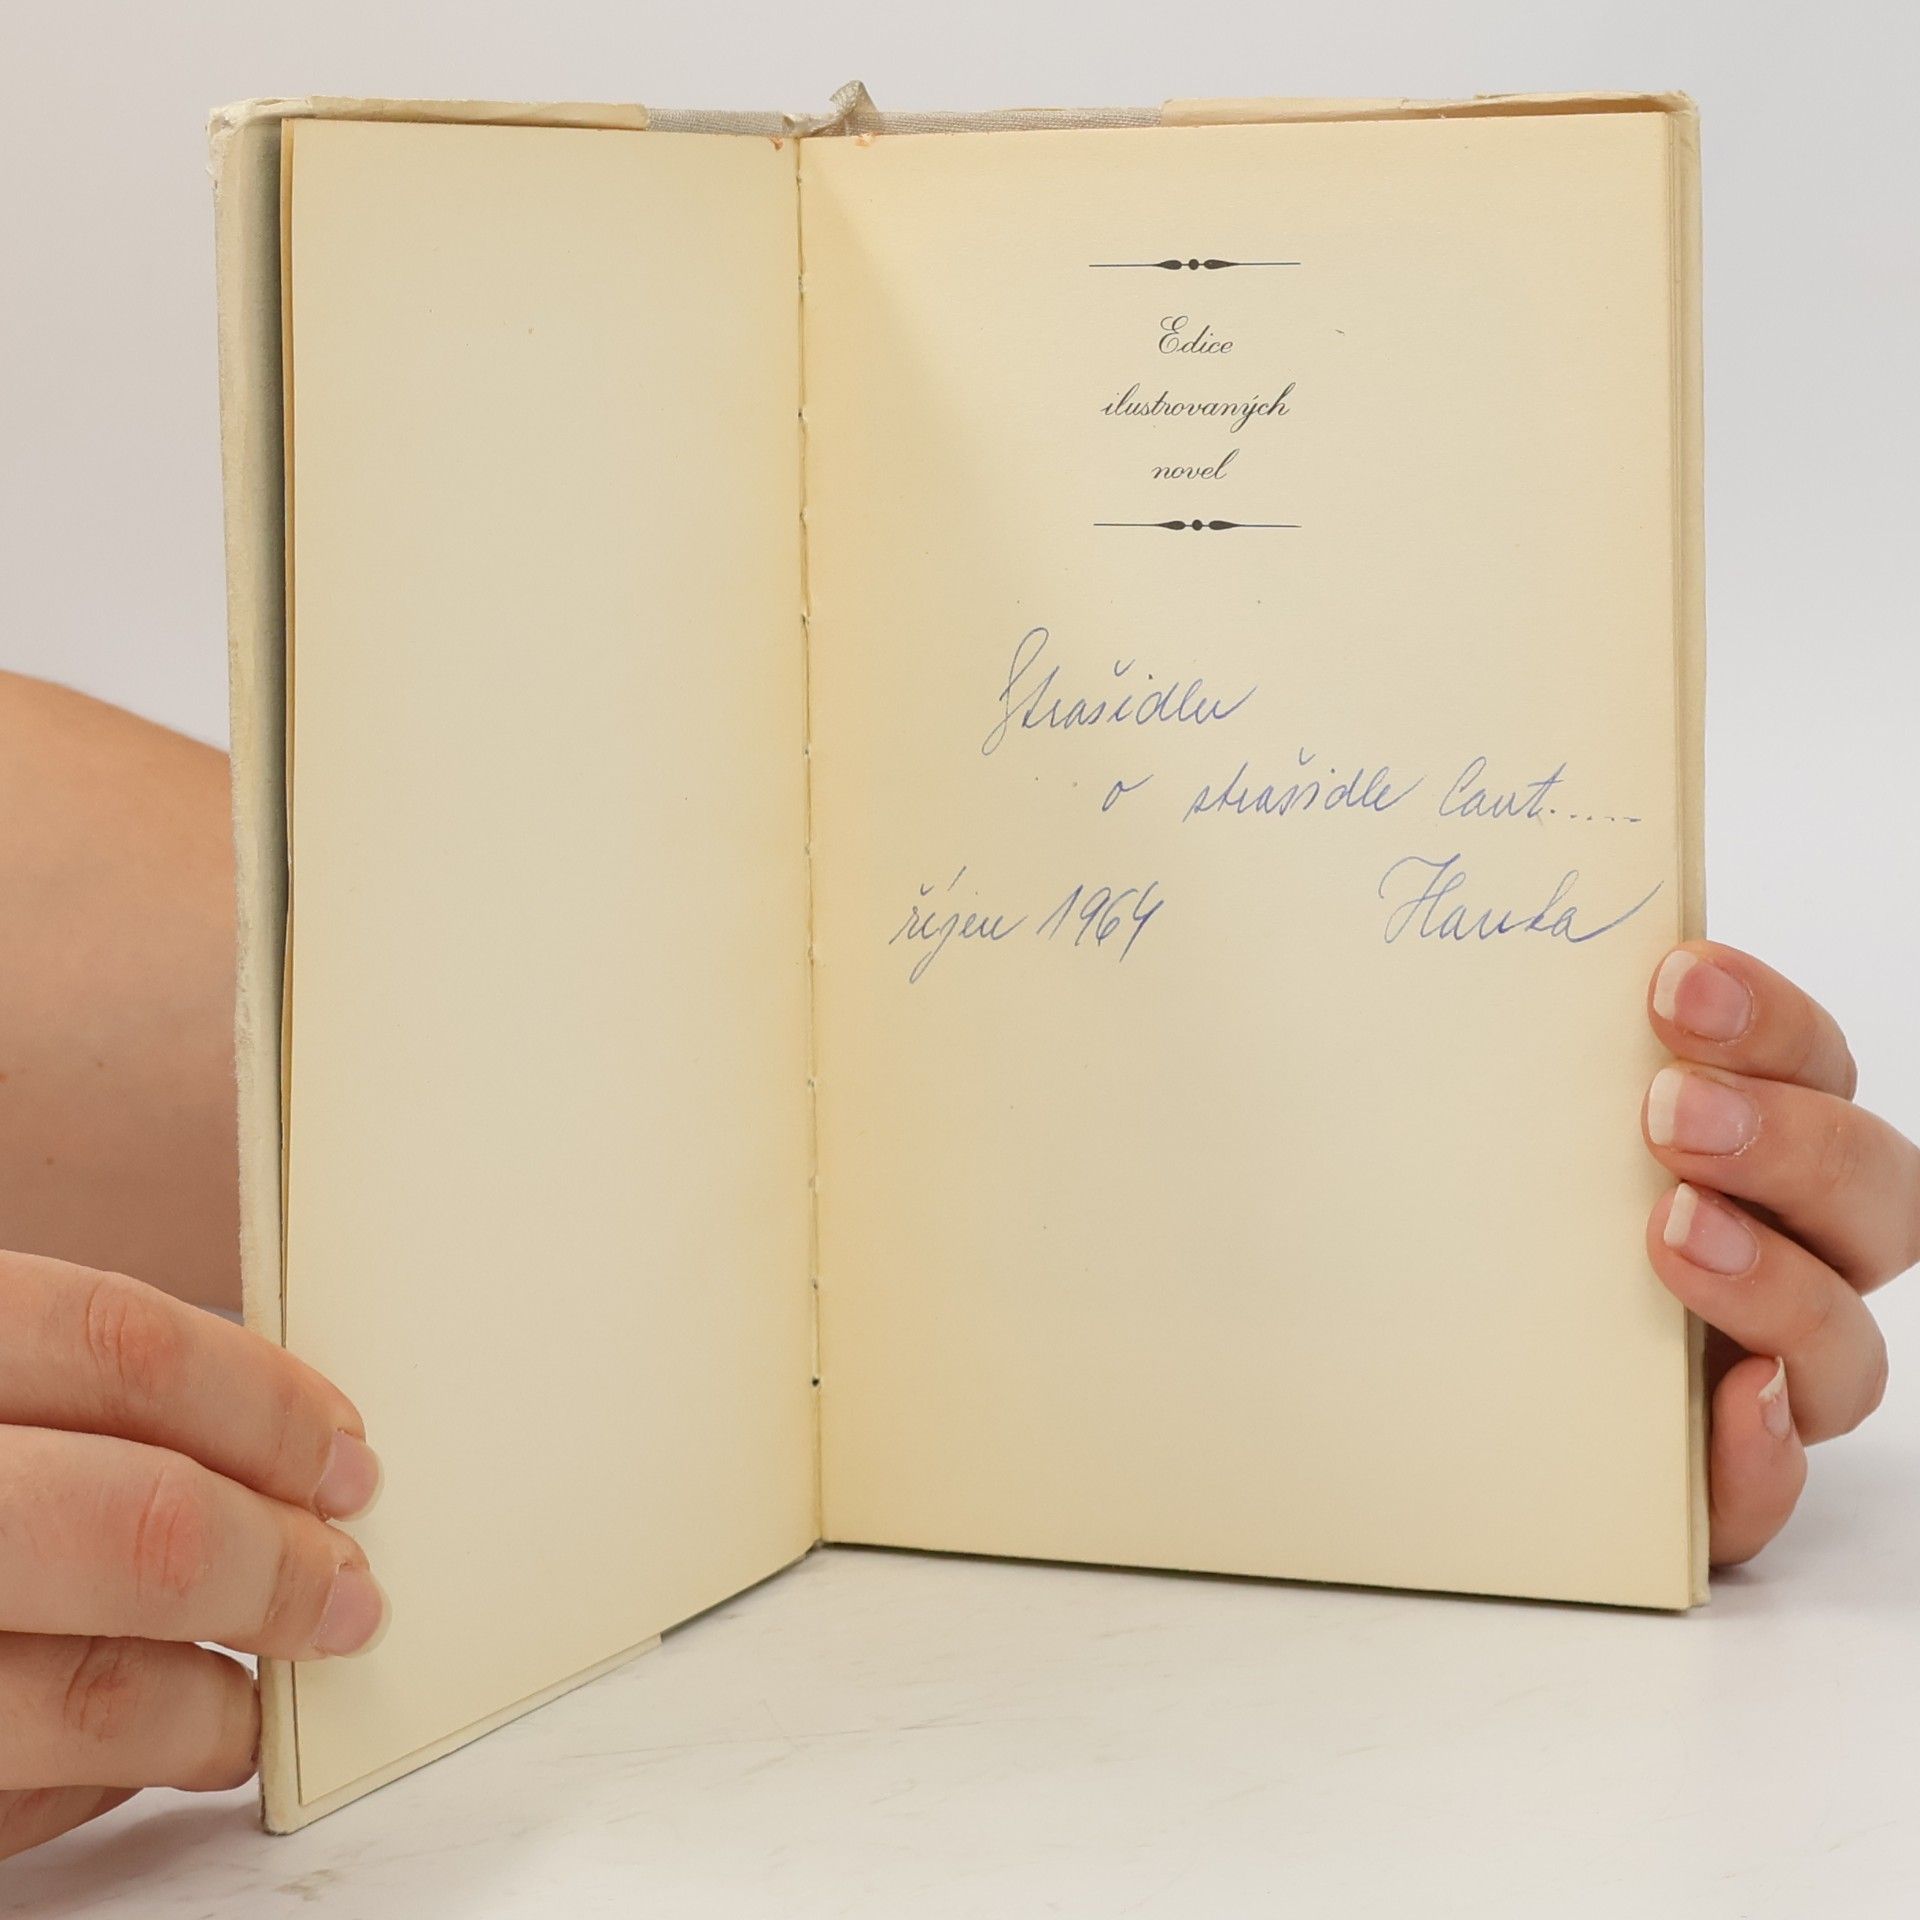 Edice
ilustrovaných
novel
Strašidlu
o strašidle Cant.....
říjen 1964 Hanka